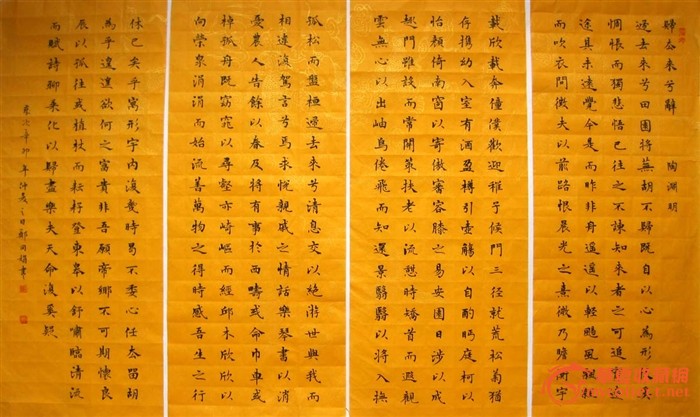 歸去來兮辭 陶淵明
歸去來兮田園將蕪胡不歸既自以心為形役奚
惆悵而獨悲悟已往之不諫知來者之可追實迷
途其未遠覺今是而昨非舟遙遙以輕颺風飄飄
而吹衣問徵夫以前路恨晨光之熹微乃瞻衡宇
載欣載奔僮僕歡迎稚子候門三徑就荒松菊猶
存携幼入室有酒盈樽引壺觴以自酌眄庭柯以
怡顏倚南窗以寄傲審容膝之易安園日涉以成
趣門雖設而常關策扶老以流憩時矯首而遐觀
雲無心以出岫鳥倦飛而知還景翳翳以將入撫
孤松而盤桓歸去來兮請息交以絕游世與我而
相違復駕言兮焉求悅親戚之情話樂琴書以消
憂農人告餘以春及將有事於西疇或命巾車或
棹孤舟既窈窕以尋壑亦崎嶇而經邱木欣欣以
向榮泉涓涓而始流善萬物之得時感吾生之行
休已矣乎寓形宇內復幾時曷不委心任去留胡
為乎遑遑欲何之富貴非吾願帝鄉不可期懷良
辰以孤往或植杖而耘耔登東皋以舒嘯臨清流
而賦詩聊乘化以歸盡樂夫天命復奚疑
歲次辛卯年仲夏之日鄭同娟書